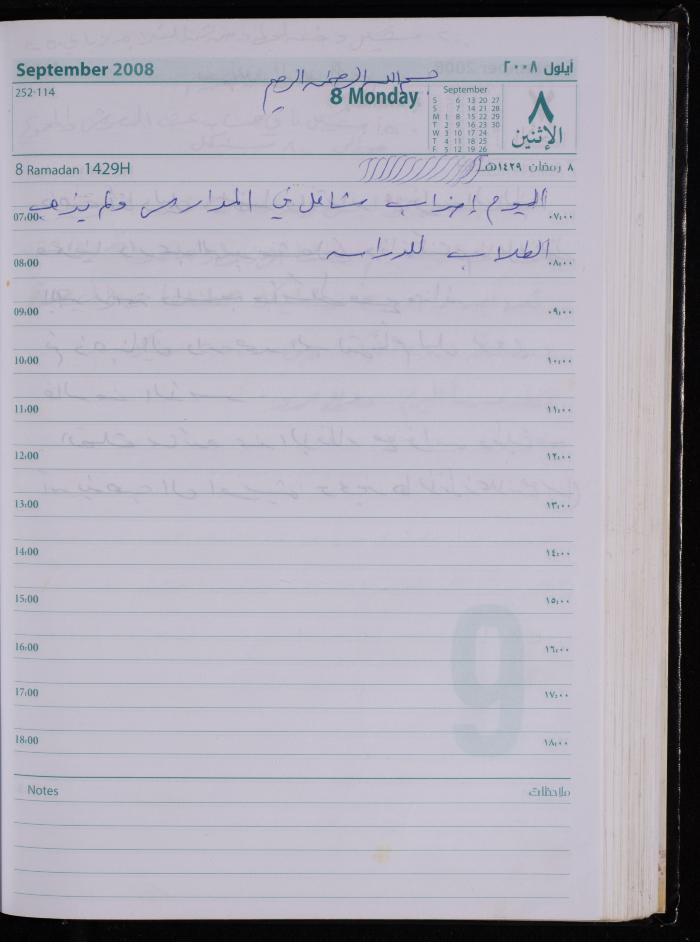 September 2008
أيلول ٢٠٠٨
بسم الله الرحمن الرحيم
252-114
8 Monday
September
S 6 13 20 27
S 7 14 21 28
M 1 8 15 22 29
T 2 9 16 23 30
W 3 10 17 24
T 4 11 18 25
F 5 12 19 26
٨
الإثنين
8 Ramadan 1429H
٨ رمضان ١٤٢٩هـ
اليوم إضراب شامل في المدارس ولم يذهب
07:00 ٠٧:٠٠
الطلاب للدراسه
08:00 ٠٨:٠٠
09:00 ٠٩:٠٠
10:00 ١٠:٠٠
11:00 ١١:٠٠
12:00 ١٢:٠٠
13:00 ١٣:٠٠
14:00 ١٤:٠٠
15:00 ١٥:٠٠
16:00 ١٦:٠٠
17:00 ١٧:٠٠
18:00 ١٨:٠٠
9
Notes ملاحظات